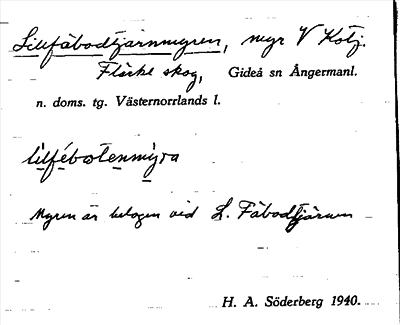 Lillfäbodtjärnmyren, myr V Kstj.
Flärke skog, Gideå sn Ångermanl.
n. doms. tg. Västernorrlands l.
lilfébotenmyra
Myren är belägen vid L. Fäbodtjärnen
H. A. Söderberg 1940.